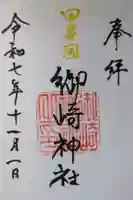 奉拝
御崎神社
令和七年十一月一日